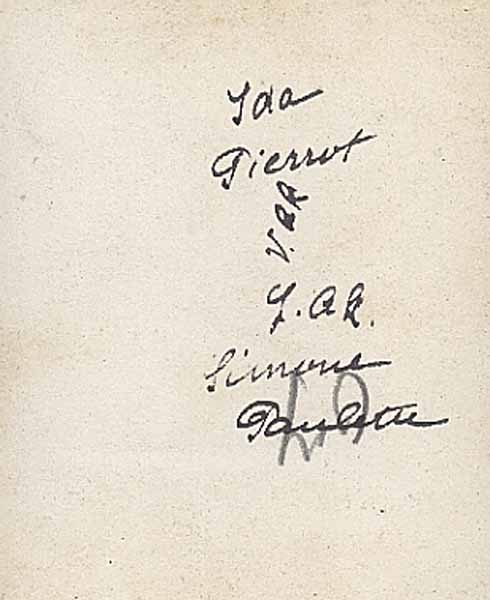 Ida
Pierrot
V. AR
Y. AR.
Simone
Paulette